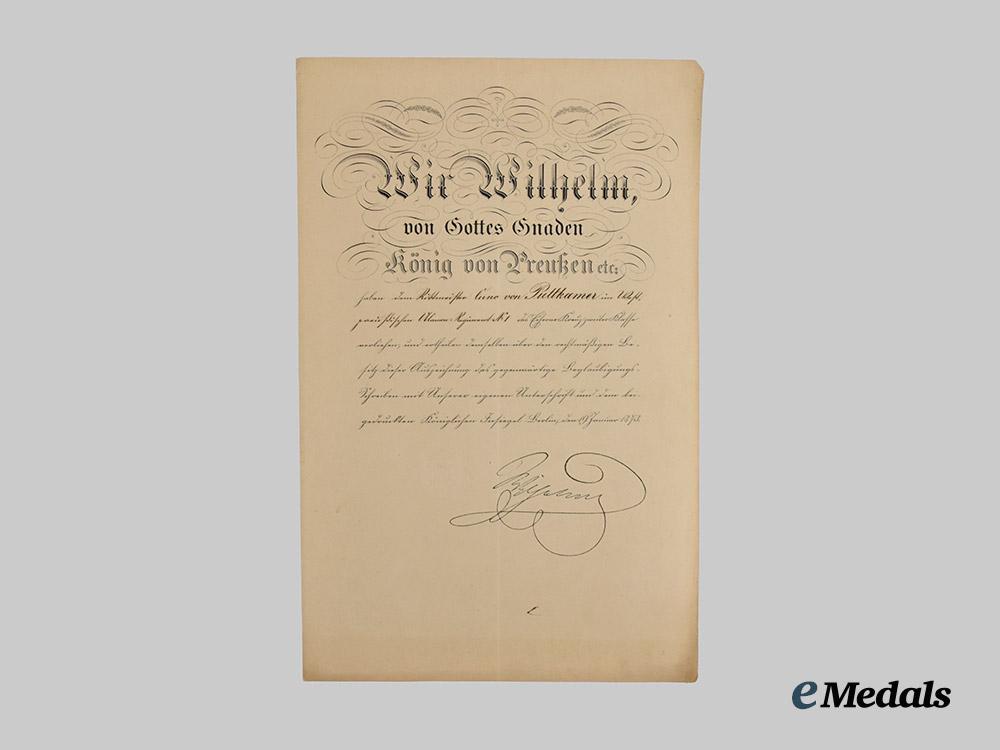 Wir Wilhelm,
von Gottes Gnaden
König von Preußen etc:
haben dem Rittmeister Cuno von Puttkamer im Westpreußischen Ulanen-Regiment No 1 das Eiserne Kreuz zweiter Klasse
verliehen, und ertheilen demselben über den rechtmäßigen Be-
sitz dieser Auszeichnung das gegenwärtige Beglaubigungs-
Schreiben mit Unserer eigenen Unterschrift und dem bei-
gedruckten Königlichen Insiegel. Berlin, den Januar 1873.
Wilhelm
eMedals